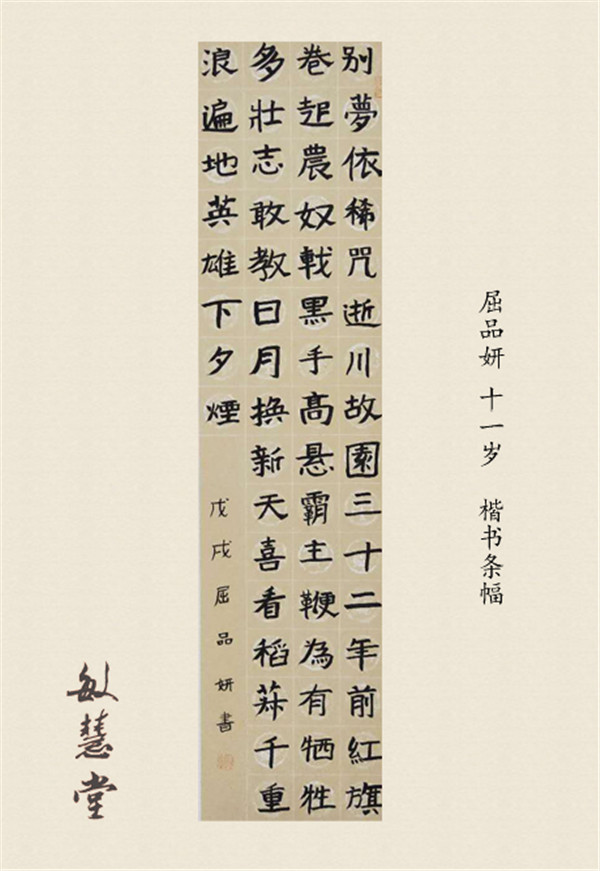 屈品妍 十一岁 楷书条幅
别夢依稀咒逝川故園三十二年前紅旗
卷起農奴戟黑手高悬霸主鞭為有牺牲
多壯志敢教日月换新天喜看稻菽千重
浪遍地英雄下夕煙
戊戌屈品妍書
敏慧堂